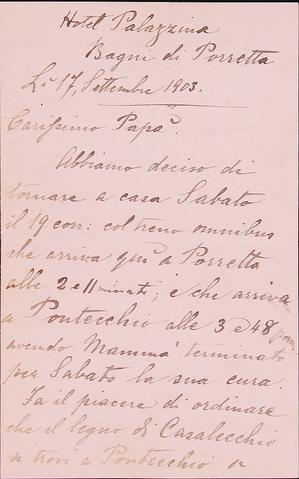 Hotel Palazzina
Bagni di Porretta
Lì 17, Settembre 1903.
Carissimo Papà.
Abbiamo deciso di
tornare a casa Sabato
il 19 corr: col treno omnibus
che arriva quì a Porretta
alle 2 e 11 minuti; e che arriva
a Pontecchio alle 3 e 48 pom
avendo Mammà terminato
per Sabato la sua cura.
Fa il piacere di ordinare
che il legno di Casalecchio
si trovi a Pontecchio